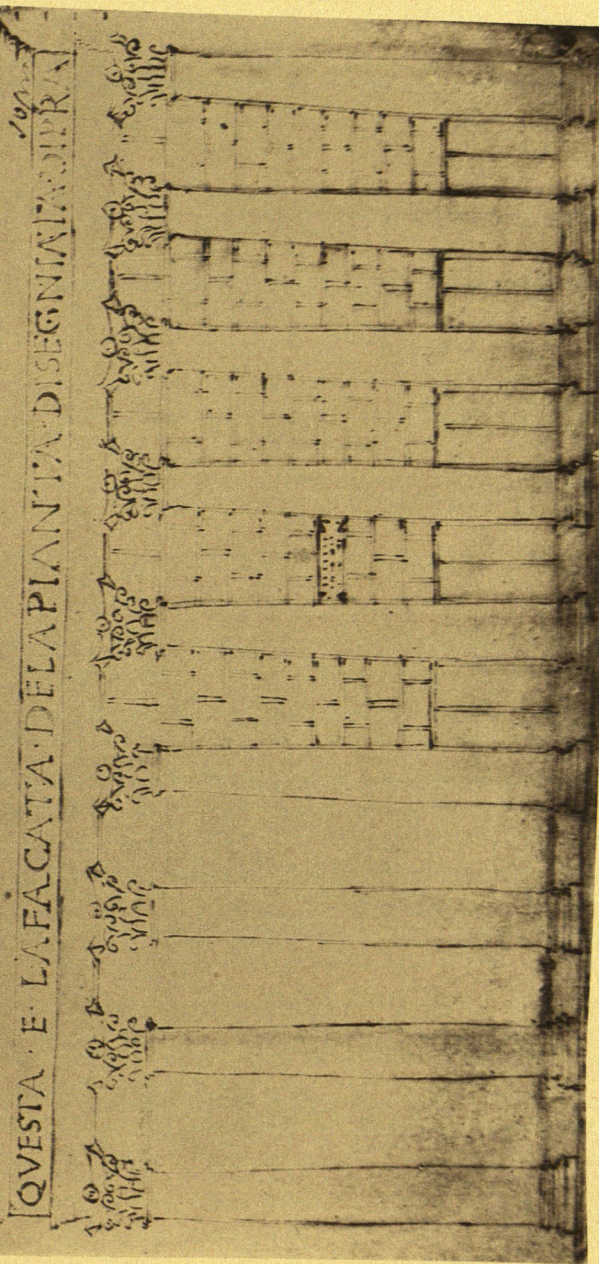 QVESTA · E · LAFACATA · DELAPIANTA · DISEGNIATA DIPRA